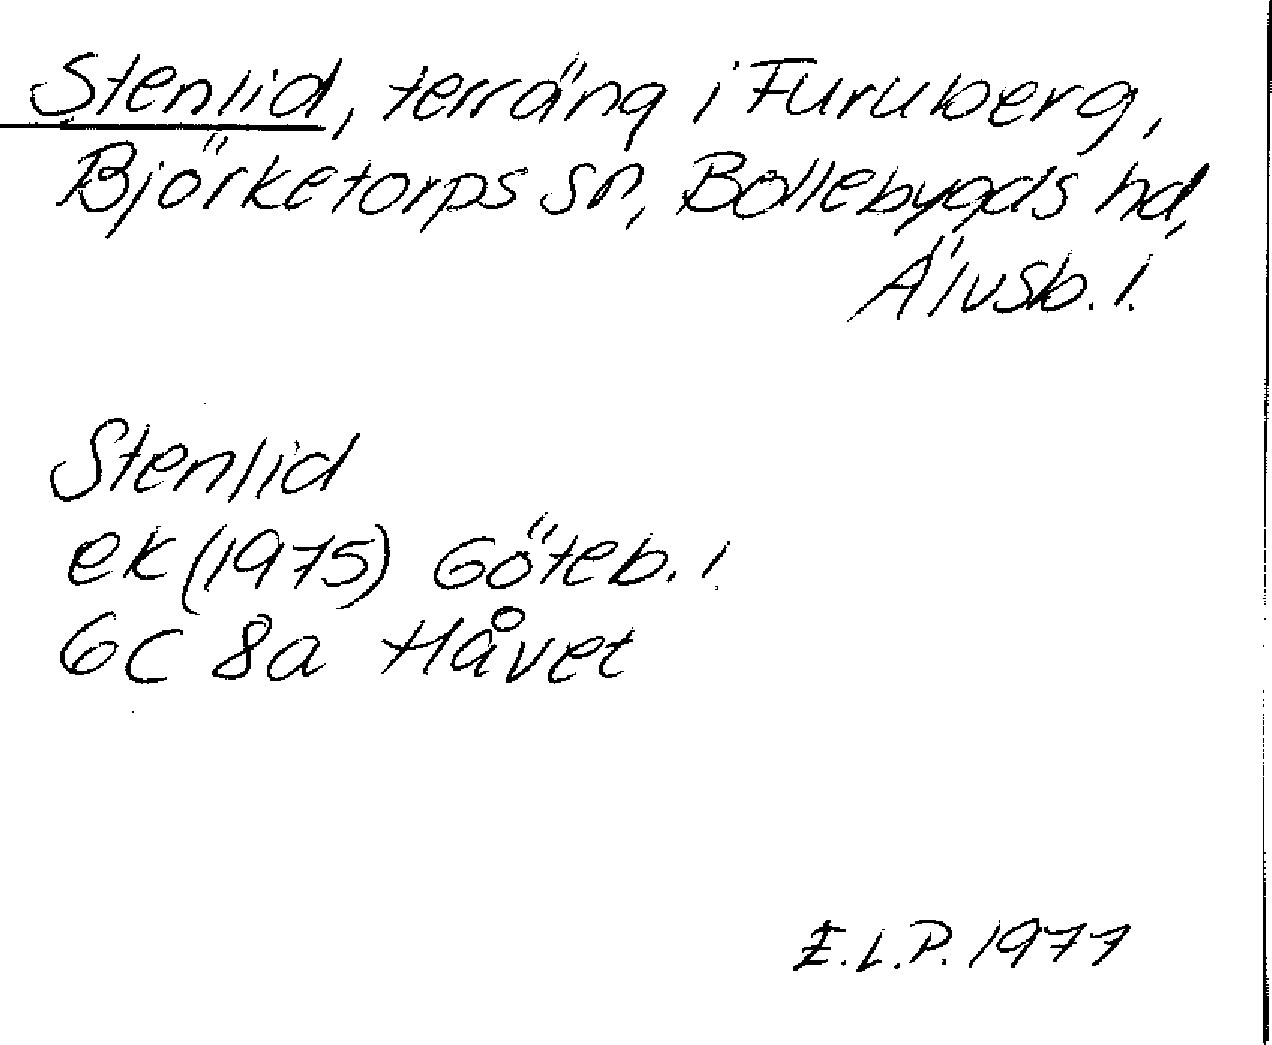 Stenlid, terräng i Furuberg,
Björketorps sn, Bollebygds hd,
Älvsb. l.
Stenlid
ek (1975) Göteb. l
6C 8a Håvet
E.L.P. 1977